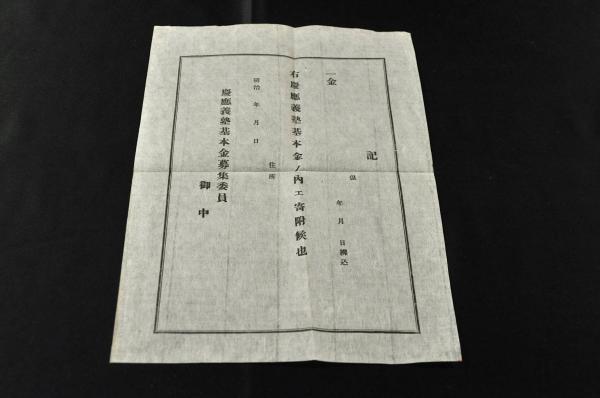 記
一金
但 年 月 日拂込
右慶應義塾基本金ノ內エ寄附候也
明治 年 月 日
住所
慶應義塾基本金募集委員
御中